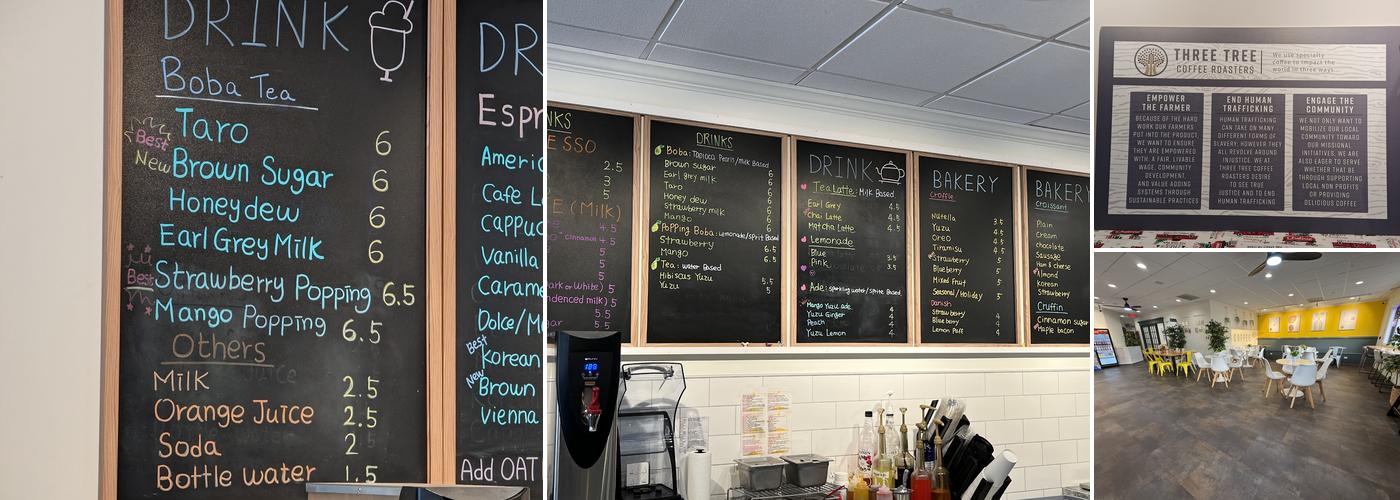 DRINK
Boba Tea
Taro 6
Best
New
Brown Sugar 6
Honeydew 6
Earl Grey Milk 6
Best
Strawberry Popping 6.5
Mango Popping 6.5
Others
Milk 2.5
Orange Juice 2.5
Soda 2
Bottle water 1.5
DR
Espr
Americ
Cafe L
Cappuc
Vanilla
Carame
Dolce/M
Best
Korean
New
Brown
Vienna
Add OAT
NKS
ESSO
2.5
3
5
E (Milk)
4.5
cinnamon 4.5
5
5
ark or White) 5
ndenced milk) 5
5.5
5.5
DRINKS
Boba: Tapioca Pearls/Milk Based
Brown sugar 6
Earl grey milk 6
Taro 6
Honey dew 6
Strawberry milk 6
Mango 6
Popping Boba: Lemonade/Sprit Based
Strawberry 6.5
Mango 6.5
Tea: water Based
Hibiscus Yuzu 5.5
Yuzu 5
DRINK
Tea Latte: Milk Based
Earl Grey 4.5
Chai Latte 4.5
Matcha Latte 4.5
Lemonade
Blue 3.5
Pink 3.5
Ade: sparkling water/sprite Based
Mango Yuzu ade 4
Yuzu Ginger 4
Peach 4
Yuzu Lemon 4
BAKERY
Croffle
Nutella 3.5
Yuzu 4.5
Oreo 4.5
Tiramisu 4.5
Strawberry 5
Blueberry 5
Mixed Fruit 5
Seasonal/Holiday 5
Danish
Strawberry 4
Blueberry 4
Lemon Puff 4
BAKERY
Croissant
Plain
Cream
chocolate
Sausage
Ham & cheese
Almond
Korean
Strawberry
Cruffin
Cinnamon sugar
Maple bacon
THREE TREE
COFFEE ROASTERS
We use specialty
coffee to impact the
world in three ways.
EMPOWER
THE FARMER
BECAUSE OF THE HARD
WORK OUR FARMERS
PUT INTO THE PRODUCT,
WE WANT TO ENSURE
THEY ARE EMPOWERED
WITH: A FAIR, LIVABLE
WAGE, COMMUNITY
DEVELOPMENT,
AND VALUE ADDING
SYSTEMS THROUGH
SUSTAINABLE PRACTICES
END HUMAN
TRAFFICKING
HUMAN TRAFFICKING
CAN TAKE ON MANY
DIFFERENT FORMS OF
SLAVERY; HOWEVER THEY
ALL REVOLVE AROUND
INJUSTICE. WE AT
THREE TREE COFFEE
ROASTERS DESIRE
TO SEE TRUE
JUSTICE AND TO END
HUMAN TRAFFICKING
ENGAGE THE
COMMUNITY
WE NOT ONLY WANT TO
MOBILIZE OUR LOCAL
COMMUNITY TOWARD
OUR MISSIONAL
INITIATIVES, WE ARE
ALSO EAGER TO SERVE
WHETHER THAT BE
THROUGH SUPPORTING
LOCAL NON PROFITS
OR PROVIDING
DELICIOUS COFFEE